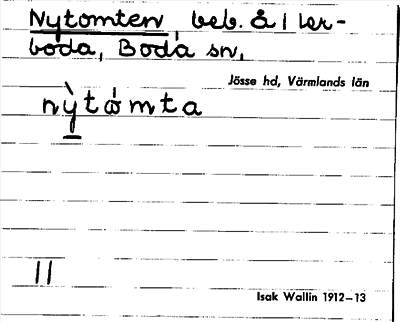 Nytomten, beb. å 1 ler-
boda, Boda sn,
Jösse hd, Värmlands län
nỳtómta
11
Isak Wallin 1912–13